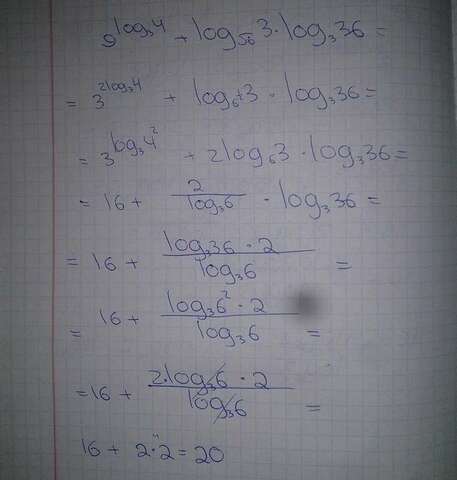 9^{log_3 4} + log_{√6} 3 · log_3 36 =
= 3^{2log_3 4} + log_{6^{1/2}} 3 · log_3 36 =
= 3^{log_3 4^2} + 2log_6 3 · log_3 36 =
= 16 + \frac{2}{log_3 6} · log_3 36 =
= 16 + \frac{log_3 36 · 2}{log_3 6} =
= 16 + \frac{log_3 6^2 · 2}{log_3 6} =
= 16 + \frac{2·log_3 6 · 2}{log_3 6} =
16 + 2·2 = 20